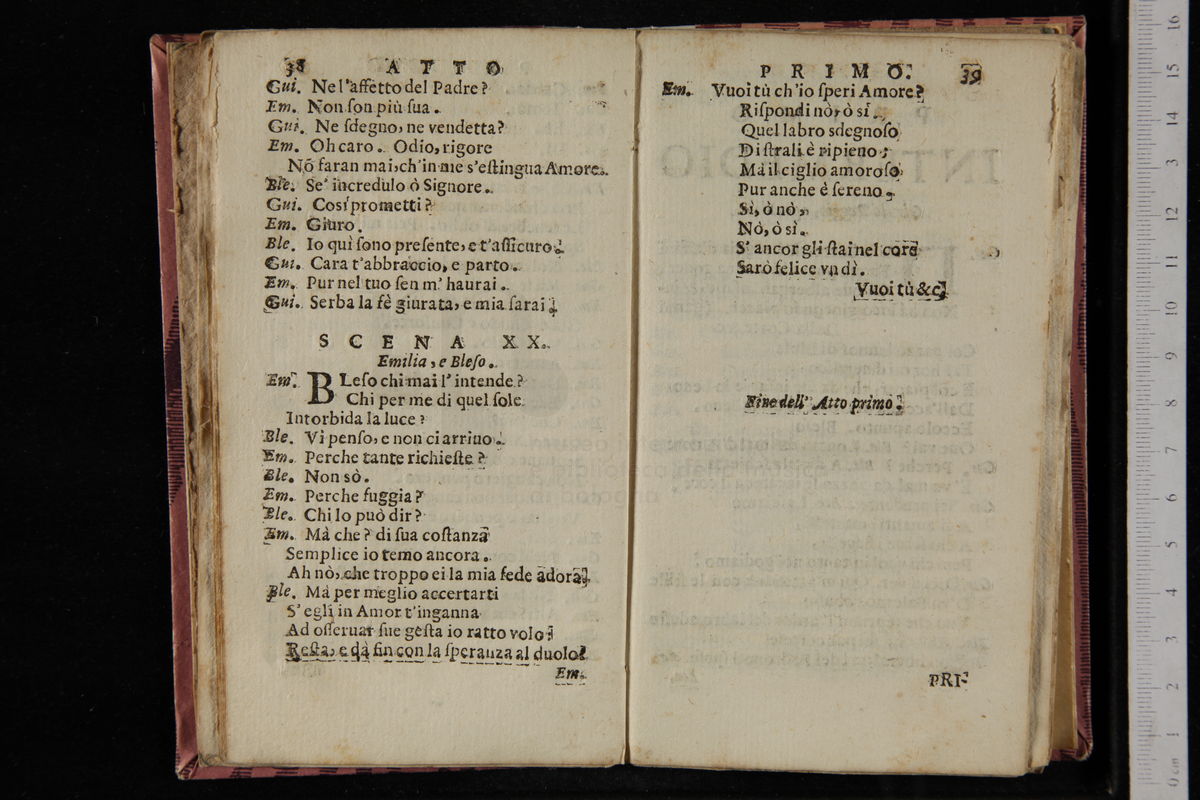 38 ATTO
Gui. Ne l'affetto del Padre?
Em. Non ſon più ſua.
Gui. Ne ſdegno, ne vendetta?
Em. Oh caro. Odio, rigore
Nõ faran mai, ch'in me s'eſtingua Amore.
Ble. Se' incredulo ò Signore.
Gui. Così prometti?
Em. Giuro.
Ble. Io quì ſono preſente, e t'aſſicuro.
Gui. Cara t'abbraccio, e parto.
Em. Pur nel tuo ſen m' haurai.
Gui. Serba la fè giurata, e mia ſarai.
SCENA XX.
Emilia, e Bleſo.
Em. BLeſo chi mai l' intende?
Chi per me di quel ſole
Intorbida la luce?
Ble. Vi penſo, e non ci arriuo.
Em. Perche tante richieſte?
Ble. Non sò.
Em. Perche fuggia?
Ble. Chi lo può dir?
Em. Mà che? di ſua coſtanza
Semplice io temo ancora.
Ah nò, che troppo ei la mia fede adora.
Ble. Mà per meglio accertarti
S' egli in Amor t'inganna
Ad oſſeruar ſue geſta io ratto volo:
Reſta, e dà fin con la ſperanza al duolo.
Em.
PRIMO. 39
Em. Vuoi tù ch'io ſperi Amore?
Riſpondi nò, ò sì.
Quel labro sdegnoſo
Di ſtrali è ripieno;
Mà il ciglio amoroſo
Pur anche è ſereno.
Sì, ò nò,
Nò, ò sì.
S' ancor gli ſtai nel core
Sarò felice vn dì.
Vuoi tù &c.
Fine dell' Atto primo.
PRI-
16
15
14
13
12
11
10
9
8
7
6
5
4
3
2
1
0 cm